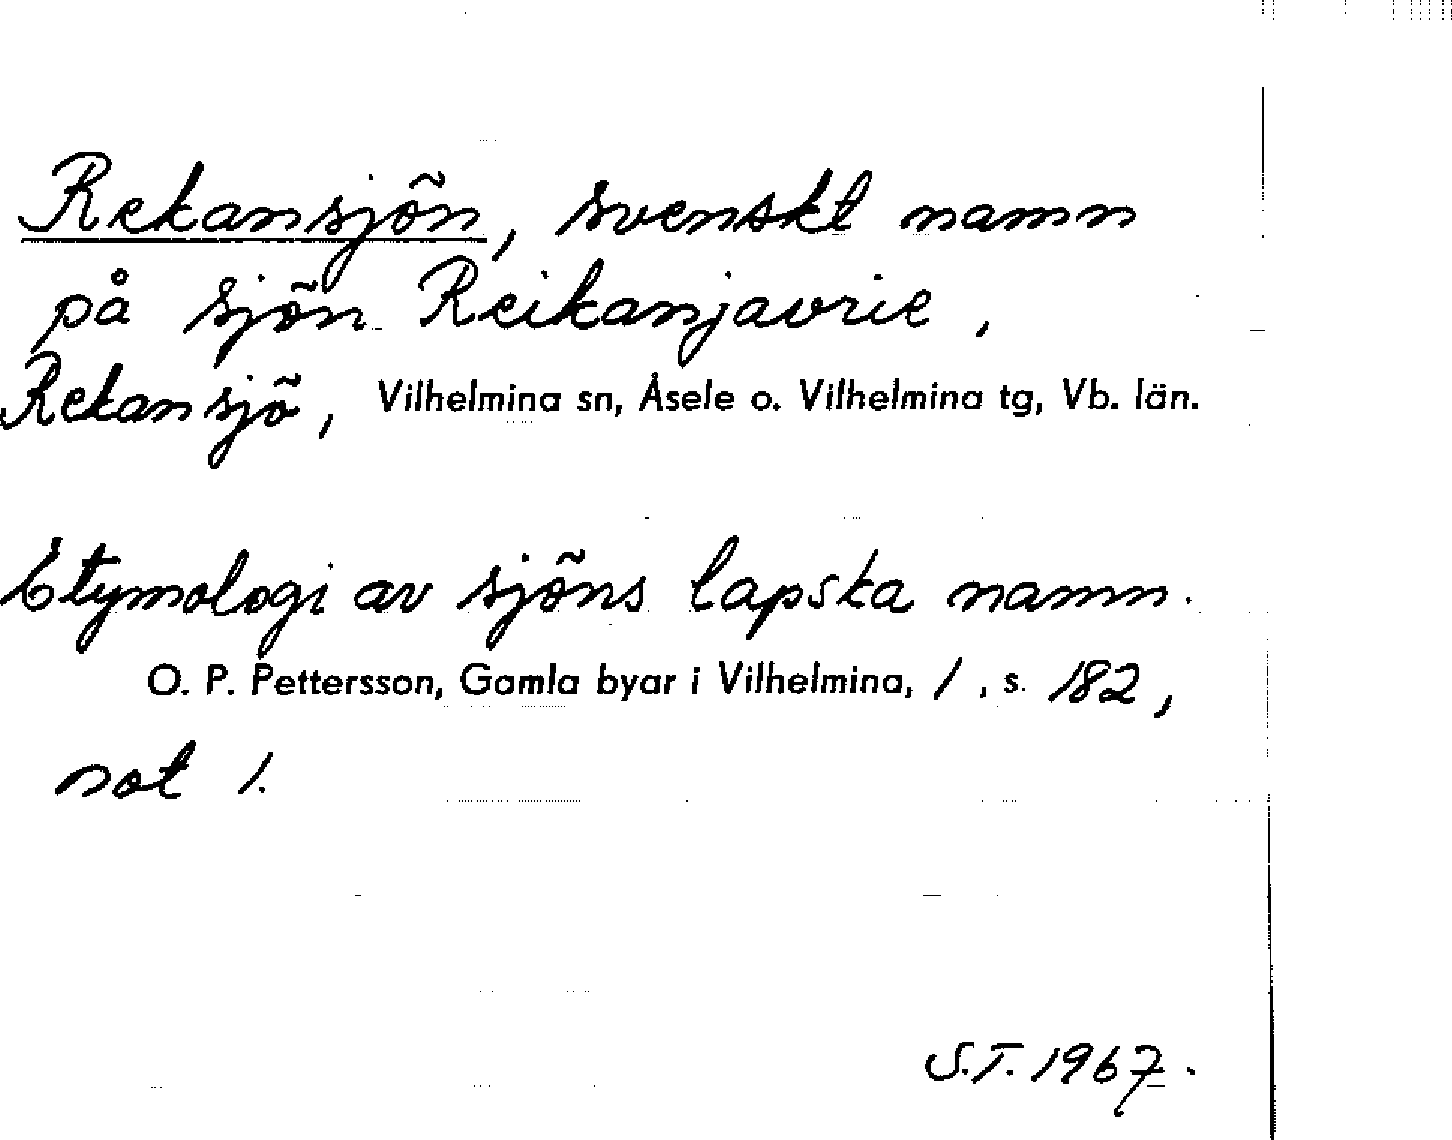 Rekansjön, svenskt namn
på sjön Reikanjavrie,
Rekansjö, Vilhelmina sn, Åsele o. Vilhelmina tg, Vb. län.
Etymologi av sjöns lapska namn.
O. P. Pettersson, Gamla byar i Vilhelmina, 1, s. 182,
not 1.
S.T. 1967.